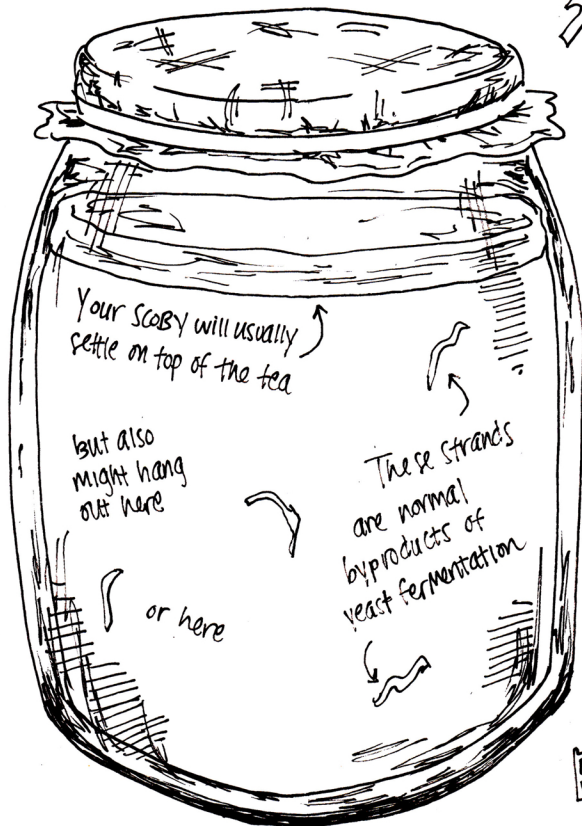 Your SCOBY will usually
settle on top of the tea
but also
might hang
out here
or here
These strands
are normal
byproducts of
yeast fermentation